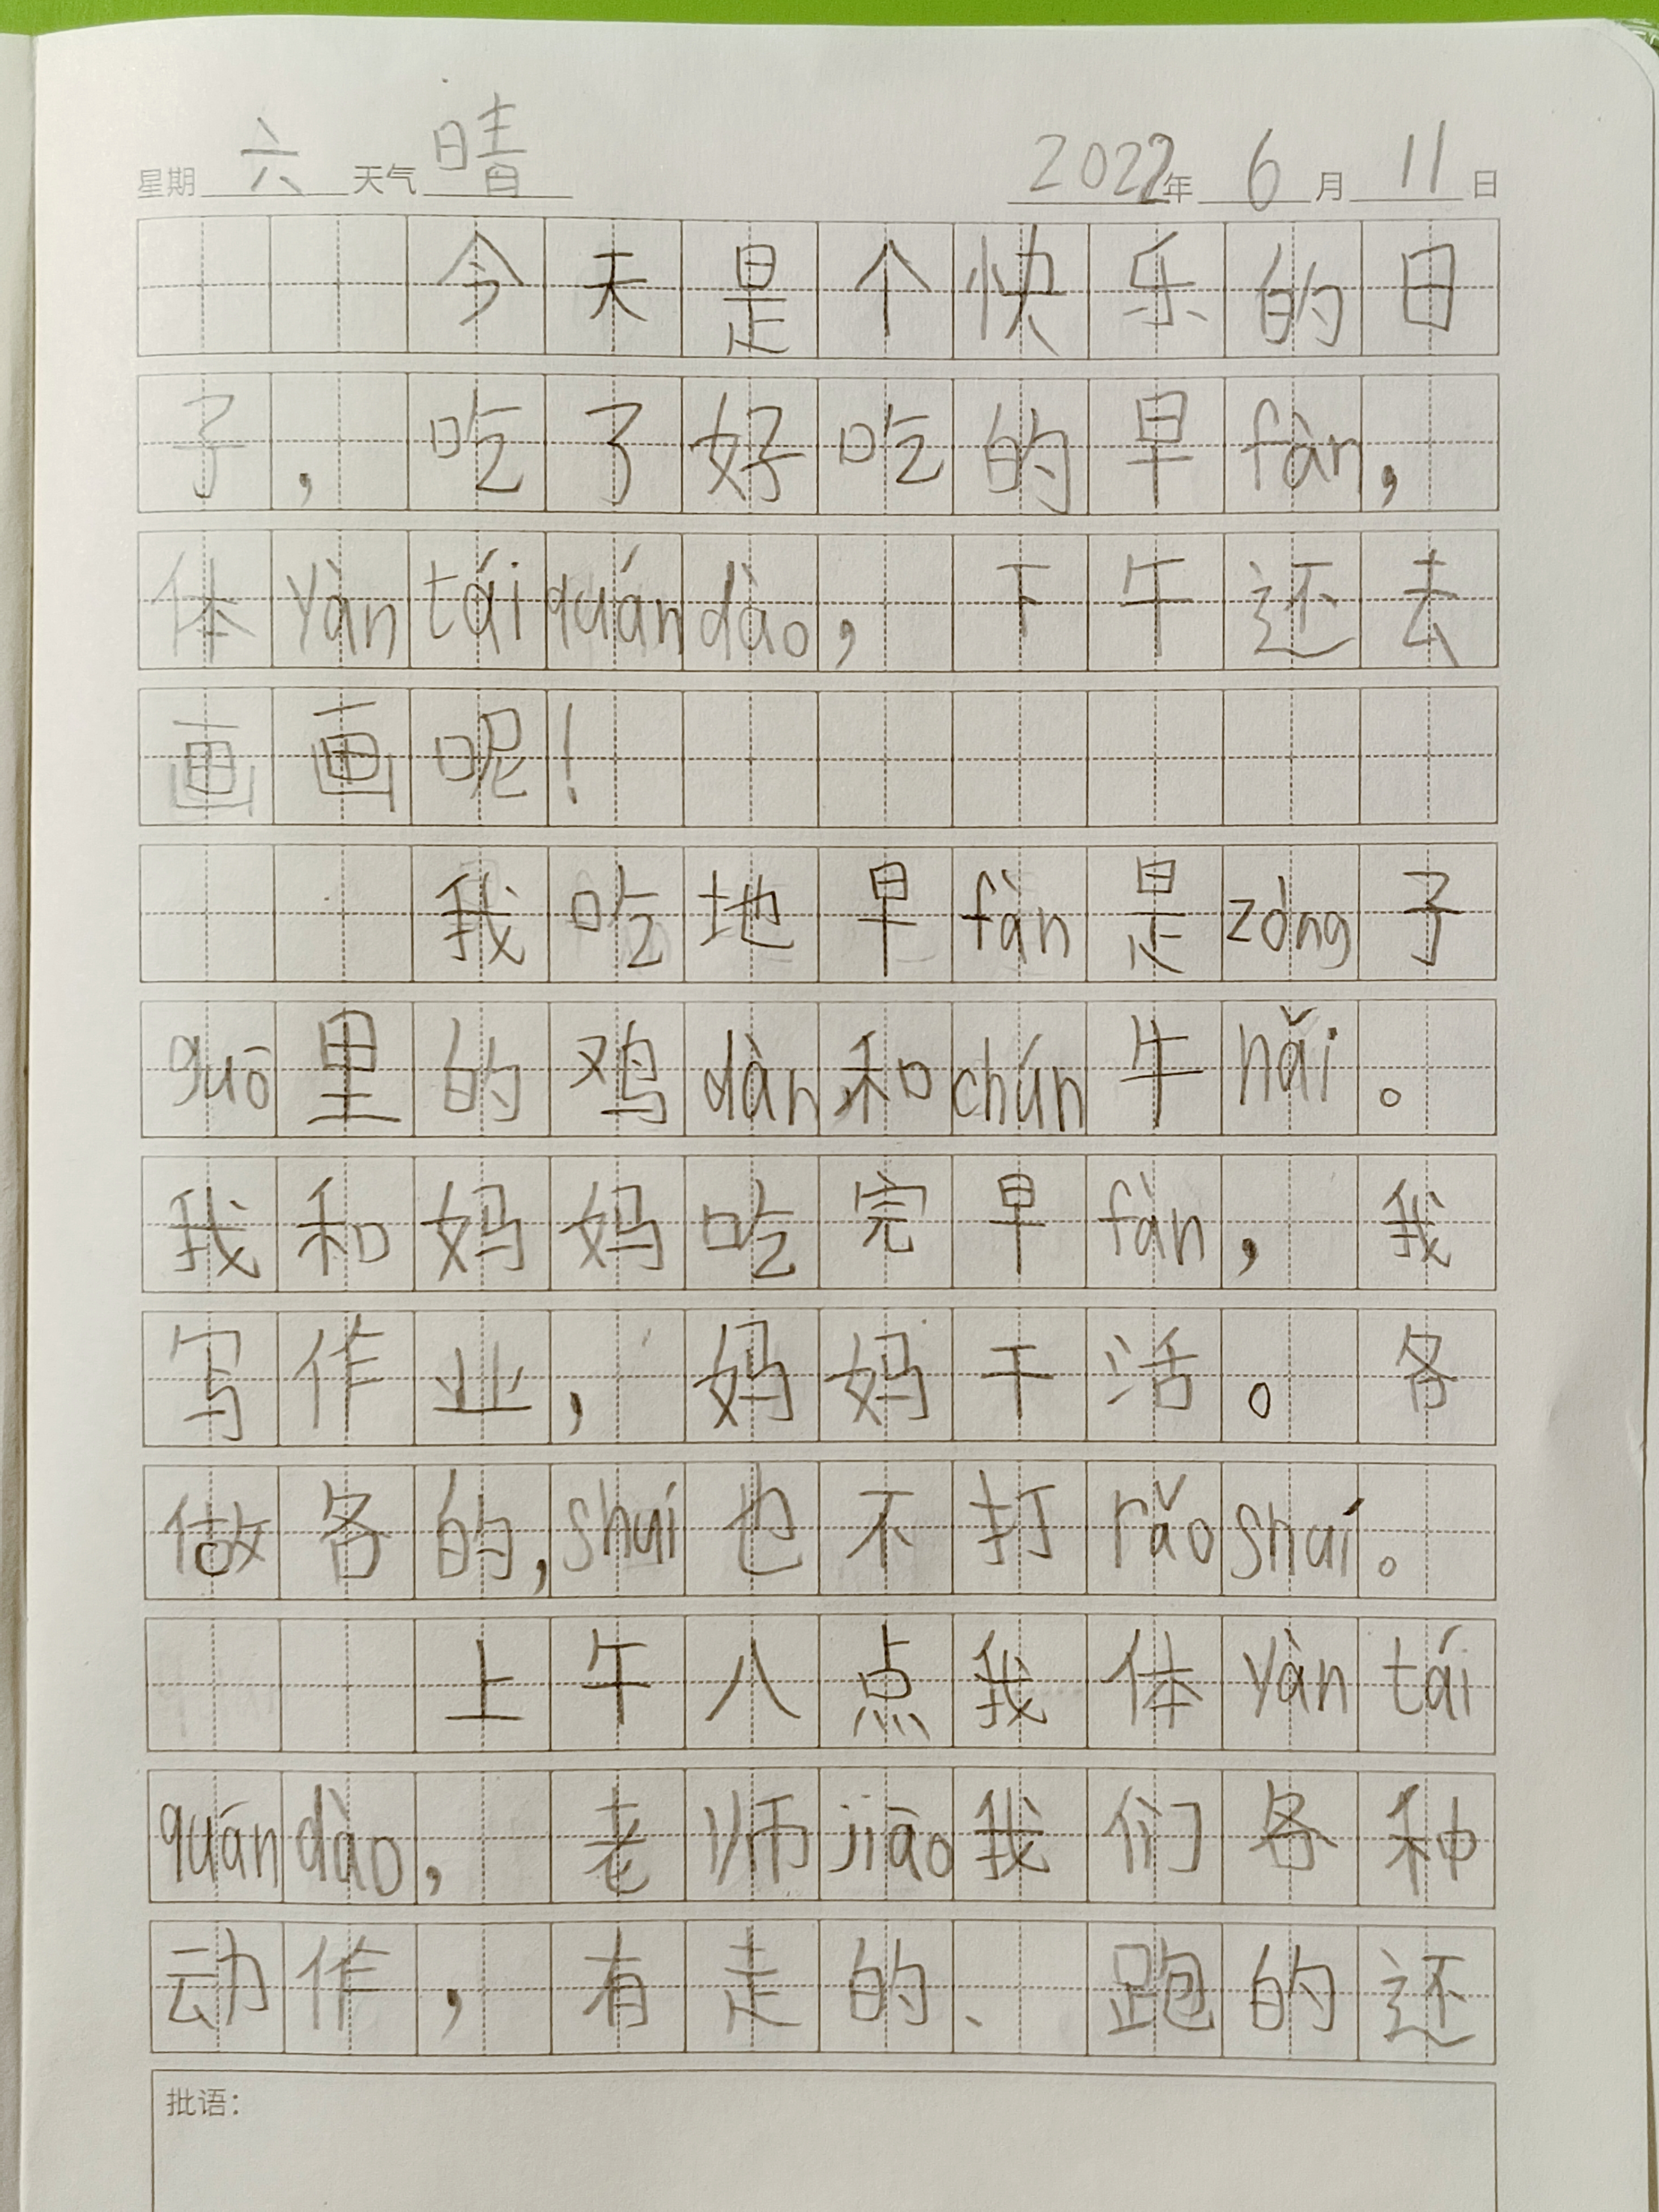 星期 六 天气 晴 2022年 6 月 11 日
今天是个快乐的日
子，吃了好吃的早fàn，
体yàn tái quán dào，下午还去
画画呢！
我吃地早fàn是zòng子
guō里的鸡dàn和chún牛nǎi。
我和妈妈吃完早fàn，我
写作业，妈妈干活。各
做各的，shuí也不打rǎo shuí。
上午八点我体yàn tái
quán dào，老师jiāo我们各种
动作，有走的、跑的还
批语：